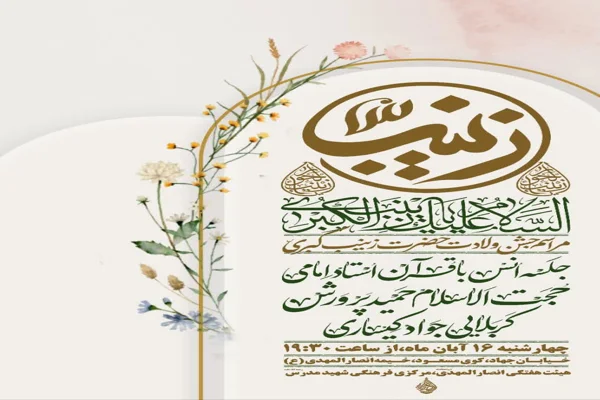 زینب
السلام علیک یا زینب الکبری
مراسم جشن ولادت حضرت زینب کبری
جلسه انس با قرآن استاد امامی
حجت الاسلام حمید پرورش
کربلایی جواد کیساری
چهارشنبه ۱۶ آبان ماه، از ساعت ۱۹:۳۰
خیابان جهاد، کوی مسعود، خیمه انصار المهدی(ع)
هیئت هفتگی انصار المهدی، مرکزی فرهنگی شهید مدرس